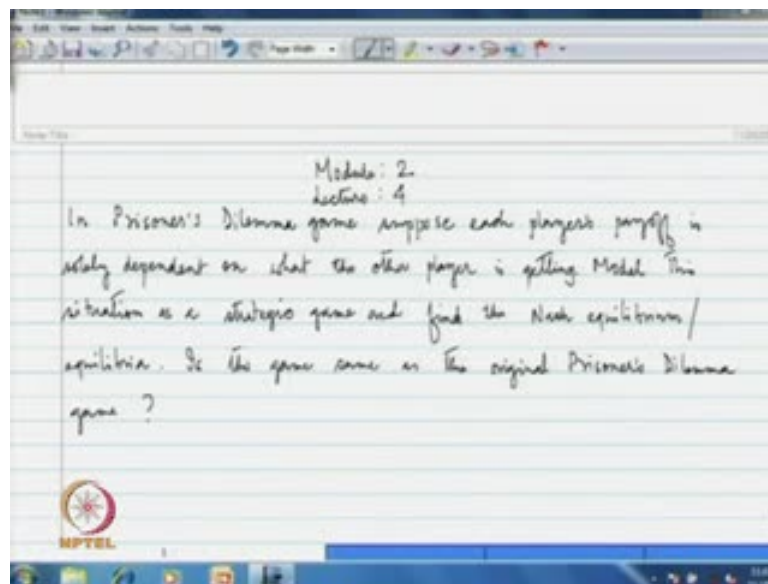 Edit View Insert Actions Tools Help
Page Width
Note Title
Module : 2
Lecture : 4
In Prisoner's Dilemma game suppose each player's payoff is
solely dependent on what the other player is getting Model This
situation as a strategic game and find the Nash equilibrium /
equilibria. Is the game same as the original Prisoner's Dilemma
game ?
NPTEL